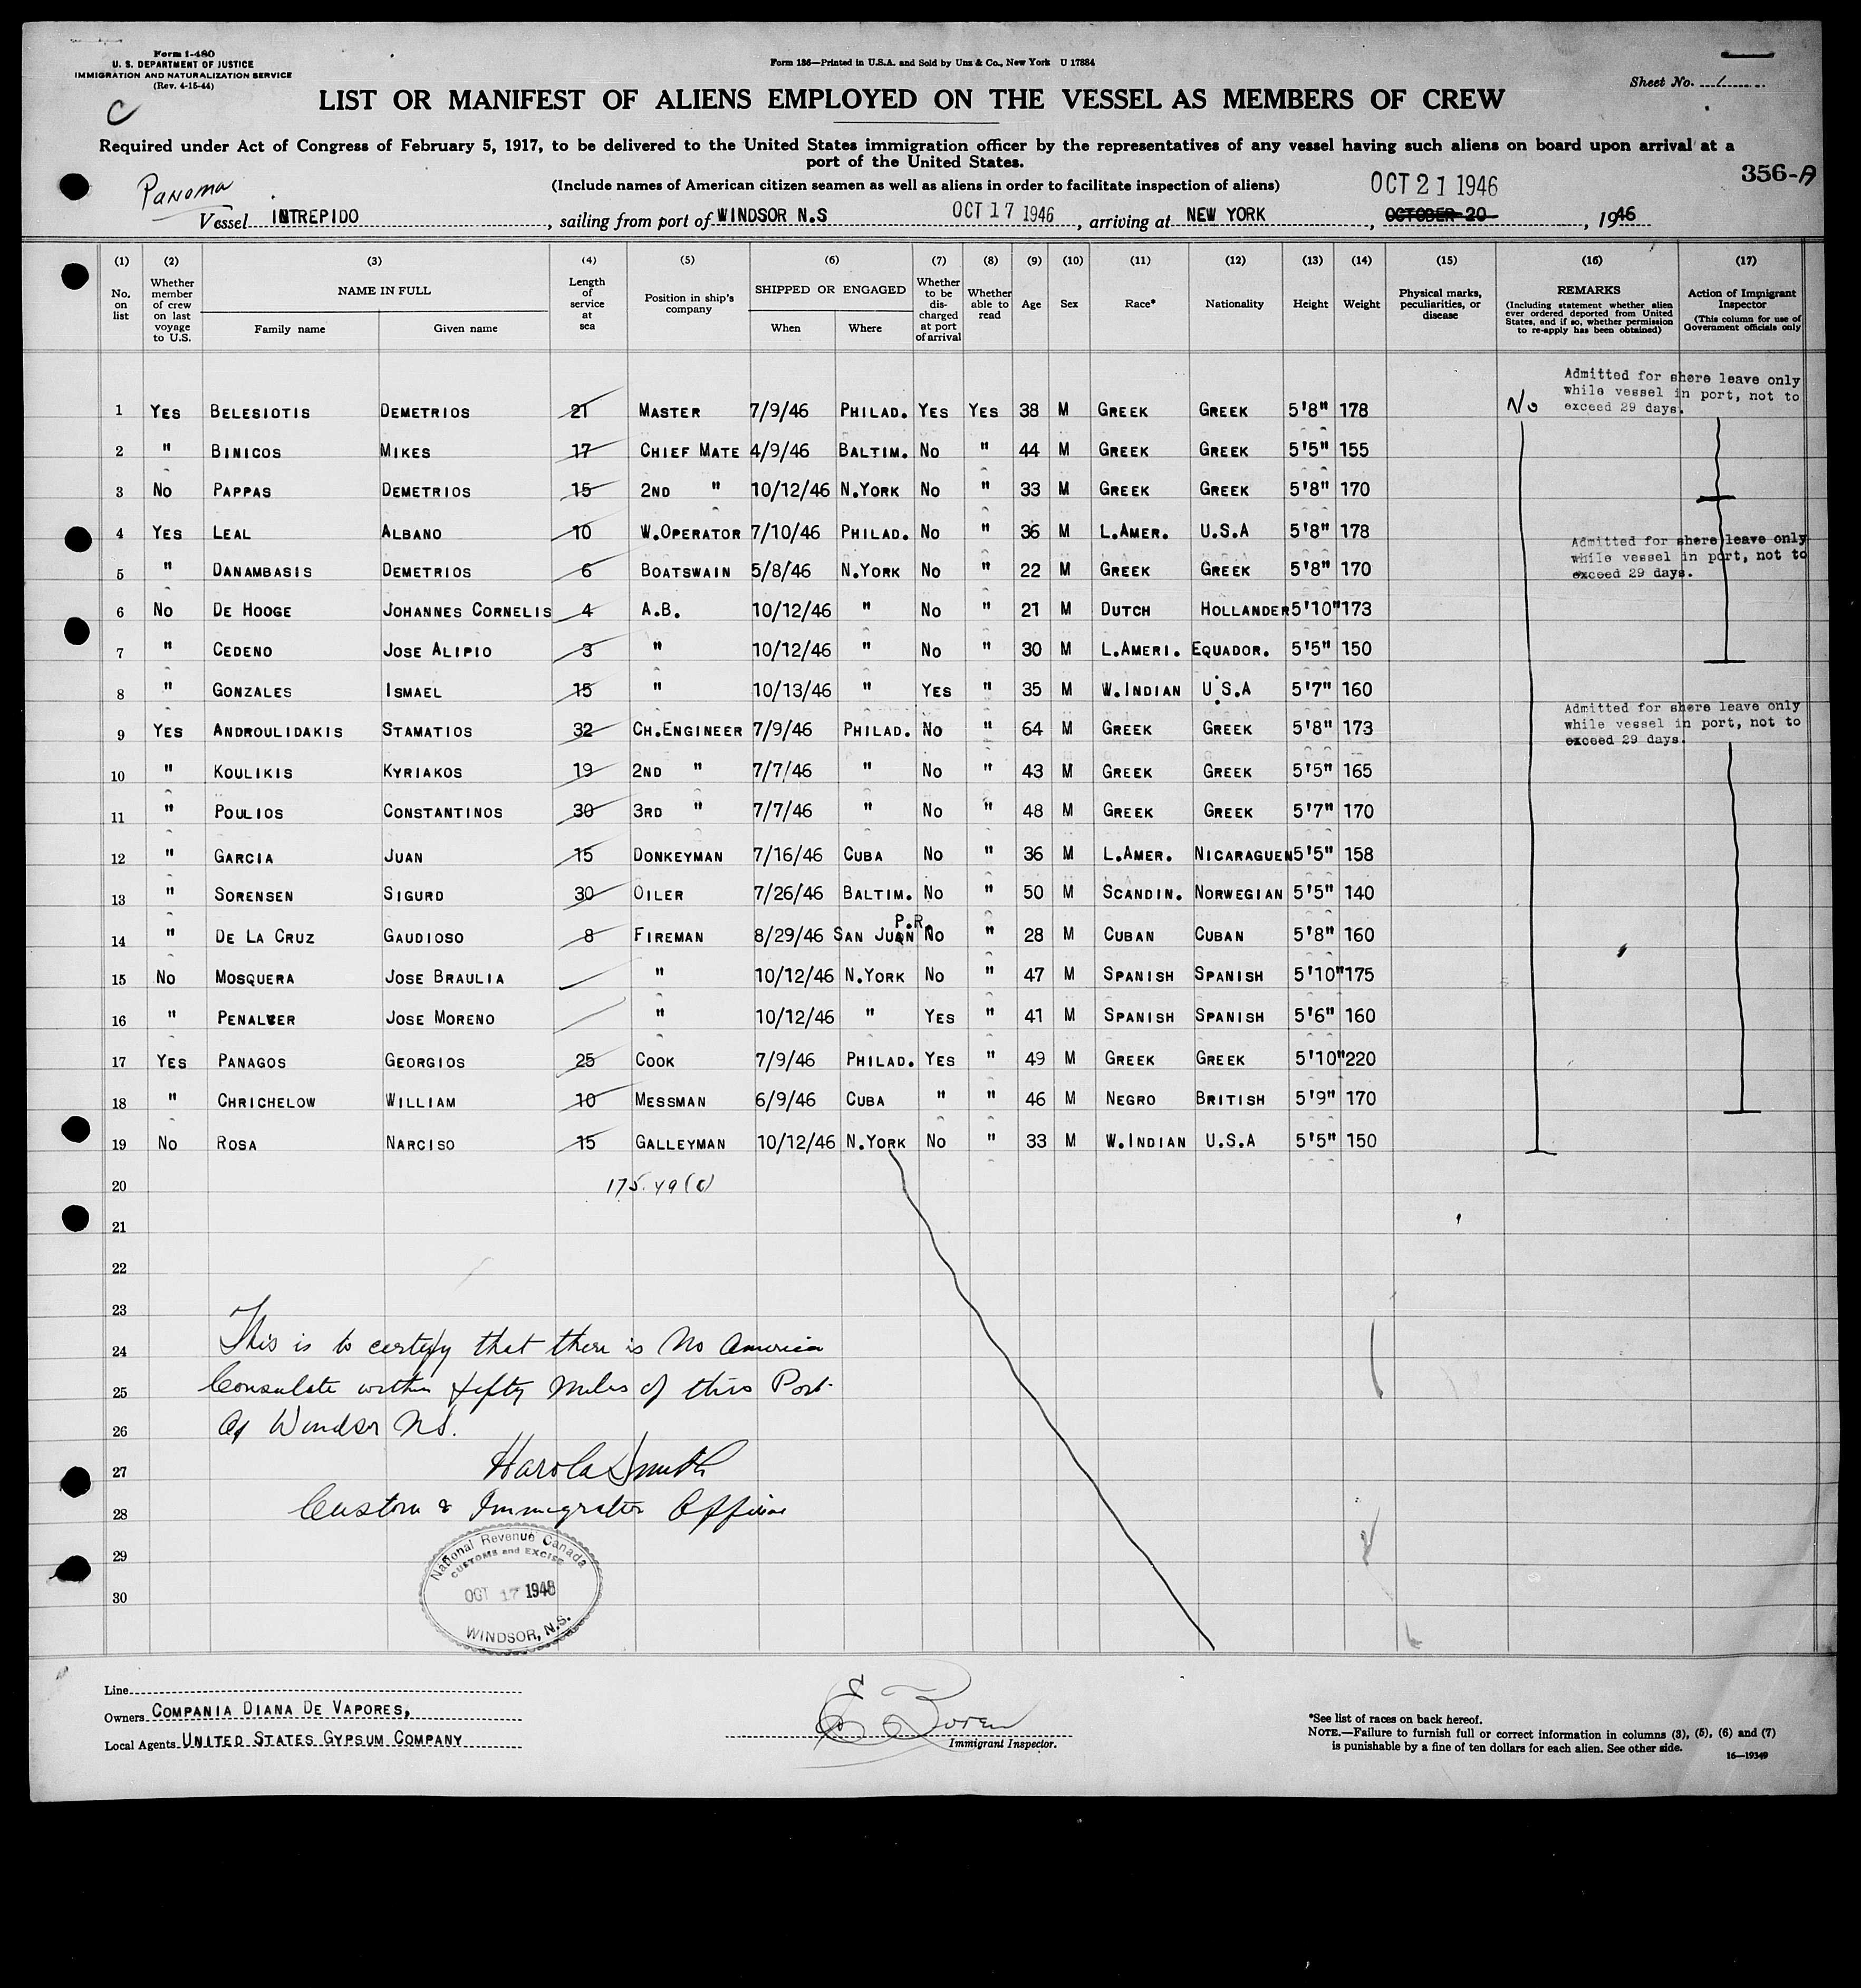 Form I-480
U. S. DEPARTMENT OF JUSTICE
IMMIGRATION AND NATURALIZATION SERVICE
(Rev. 4-15-44)
C
Form 186—Printed in U.S.A. and Sold by Unz & Co., New York U 17884
Sheet No.
LIST OR MANIFEST OF ALIENS EMPLOYED ON THE VESSEL AS MEMBERS OF CREW
Required under Act of Congress of February 5, 1917, to be delivered to the United States immigration officer by the representatives of any vessel having such aliens on board upon arrival at a
port of the United States.
(Include names of American citizen seamen as well as aliens in order to facilitate inspection of aliens)
OCT 21 1946
356-A
Panama
Vessel INTREPIDO, sailing from port of WINDSOR N.S OCT 17 1946, arriving at NEW YORK, OCTOBER 20, 1946
(1) No. on list
(2) Whether member of crew on last voyage to U.S.
(3) NAME IN FULL Family name Given name
(4) Length of service at sea
(5) Position in ship's company
(6) SHIPPED OR ENGAGED When Where
(7) Whether to be discharged at port of arrival
(8) Whether able to read
(9) Age
(10) Sex
(11) Race*
(12) Nationality
(13) Height
(14) Weight
(15) Physical marks, peculiarities, or disease
(16) REMARKS (Including statement whether alien ever ordered deported from United States, and if so, whether permission to re-apply has been obtained)
(17) Action of Immigrant Inspector (This column for use of Government officials only
Admitted for shore leave only
while vessel in port, not to
exceed 29 days.
1 YES BELESIOTIS DEMETRIOS 21 MASTER 7/9/46 PHILAD. YES YES 38 M GREEK GREEK 5'8" 178 No
2 " BINICOS MIKES 17 CHIEF MATE 4/9/46 BALTIM. NO " 44 M GREEK GREEK 5'5" 155
3 NO PAPPAS DEMETRIOS 15 2ND " 10/12/46 N.YORK NO " 33 M GREEK GREEK 5'8" 170
4 YES LEAL ALBANO 10 W.OPERATOR 7/10/46 PHILAD. NO " 36 M L.AMER. U.S.A 5'8" 178
Admitted for shore leave only
while vessel in port, not to
exceed 29 days.
5 " DANAMBASIS DEMETRIOS 6 BOATSWAIN 5/8/46 N.YORK NO " 22 M GREEK GREEK 5'8" 170
6 NO DE HOOGE JOHANNES CORNELIS 4 A.B. 10/12/46 " NO " 21 M DUTCH HOLLANDER 5'10" 173
7 " CEDENO JOSE ALIPIO 3 " 10/12/46 " NO " 30 M L.AMERI. EQUADOR. 5'5" 150
8 " GONZALES ISMAEL 15 " 10/13/46 " YES " 35 M W.INDIAN U.S.A 5'7" 160
Admitted for shore leave only
while vessel in port, not to
exceed 29 days.
9 YES ANDROULIDAKIS STAMATIOS 32 CH.ENGINEER 7/9/46 PHILAD. NO " 64 M GREEK GREEK 5'8" 173
10 " KOULIKIS KYRIAKOS 19 2ND " 7/7/46 " NO " 43 M GREEK GREEK 5'5" 165
11 " POULIOS CONSTANTINOS 30 3RD " 7/7/46 " NO " 48 M GREEK GREEK 5'7" 170
12 " GARCIA JUAN 15 DONKEYMAN 7/16/46 CUBA NO " 36 M L.AMER. NICARAGUEN 5'5" 158
13 " SORENSEN SIGURD 30 OILER 7/26/46 BALTIM. NO " 50 M SCANDIN. NORWEGIAN 5'5" 140
14 " DE LA CRUZ GAUDIOSO 8 FIREMAN 8/29/46 SAN JUAN P.R. NO " 28 M CUBAN CUBAN 5'8" 160
15 NO MOSQUERA JOSE BRAULIA " 10/12/46 N.YORK NO " 47 M SPANISH SPANISH 5'10" 175
16 " PENALVER JOSE MORENO " 10/12/46 " YES " 41 M SPANISH SPANISH 5'6" 160
17 YES PANAGOS GEORGIOS 25 COOK 7/9/46 PHILAD. YES " 49 M GREEK GREEK 5'10" 220
18 " CHRICHELOW WILLIAM 10 MESSMAN 6/9/46 CUBA " " 46 M NEGRO BRITISH 5'9" 170
19 NO ROSA NARCISO 15 GALLEYMAN 10/12/46 N.YORK NO " 33 M W.INDIAN U.S.A 5'5" 150
20 175.49(c)
21
22
23
24 This is to certify that there is No America
25 Consulate within fifty miles of this Port
26 Of Windsor N.S.
27 Harold Smith
28 Custom & Immigration Officer
29
30
National Revenue Canada
CUSTOMS and EXCISE
OCT 17 1946
WINDSOR, N.S.
Line
Owners COMPANIA DIANA DE VAPORES,
Local Agents UNITED STATES GYPSUM COMPANY
Immigrant Inspector.
*See list of races on back hereof.
NOTE.—Failure to furnish full or correct information in columns (3), (5), (6) and (7)
is punishable by a fine of ten dollars for each alien. See other side.
16—19349